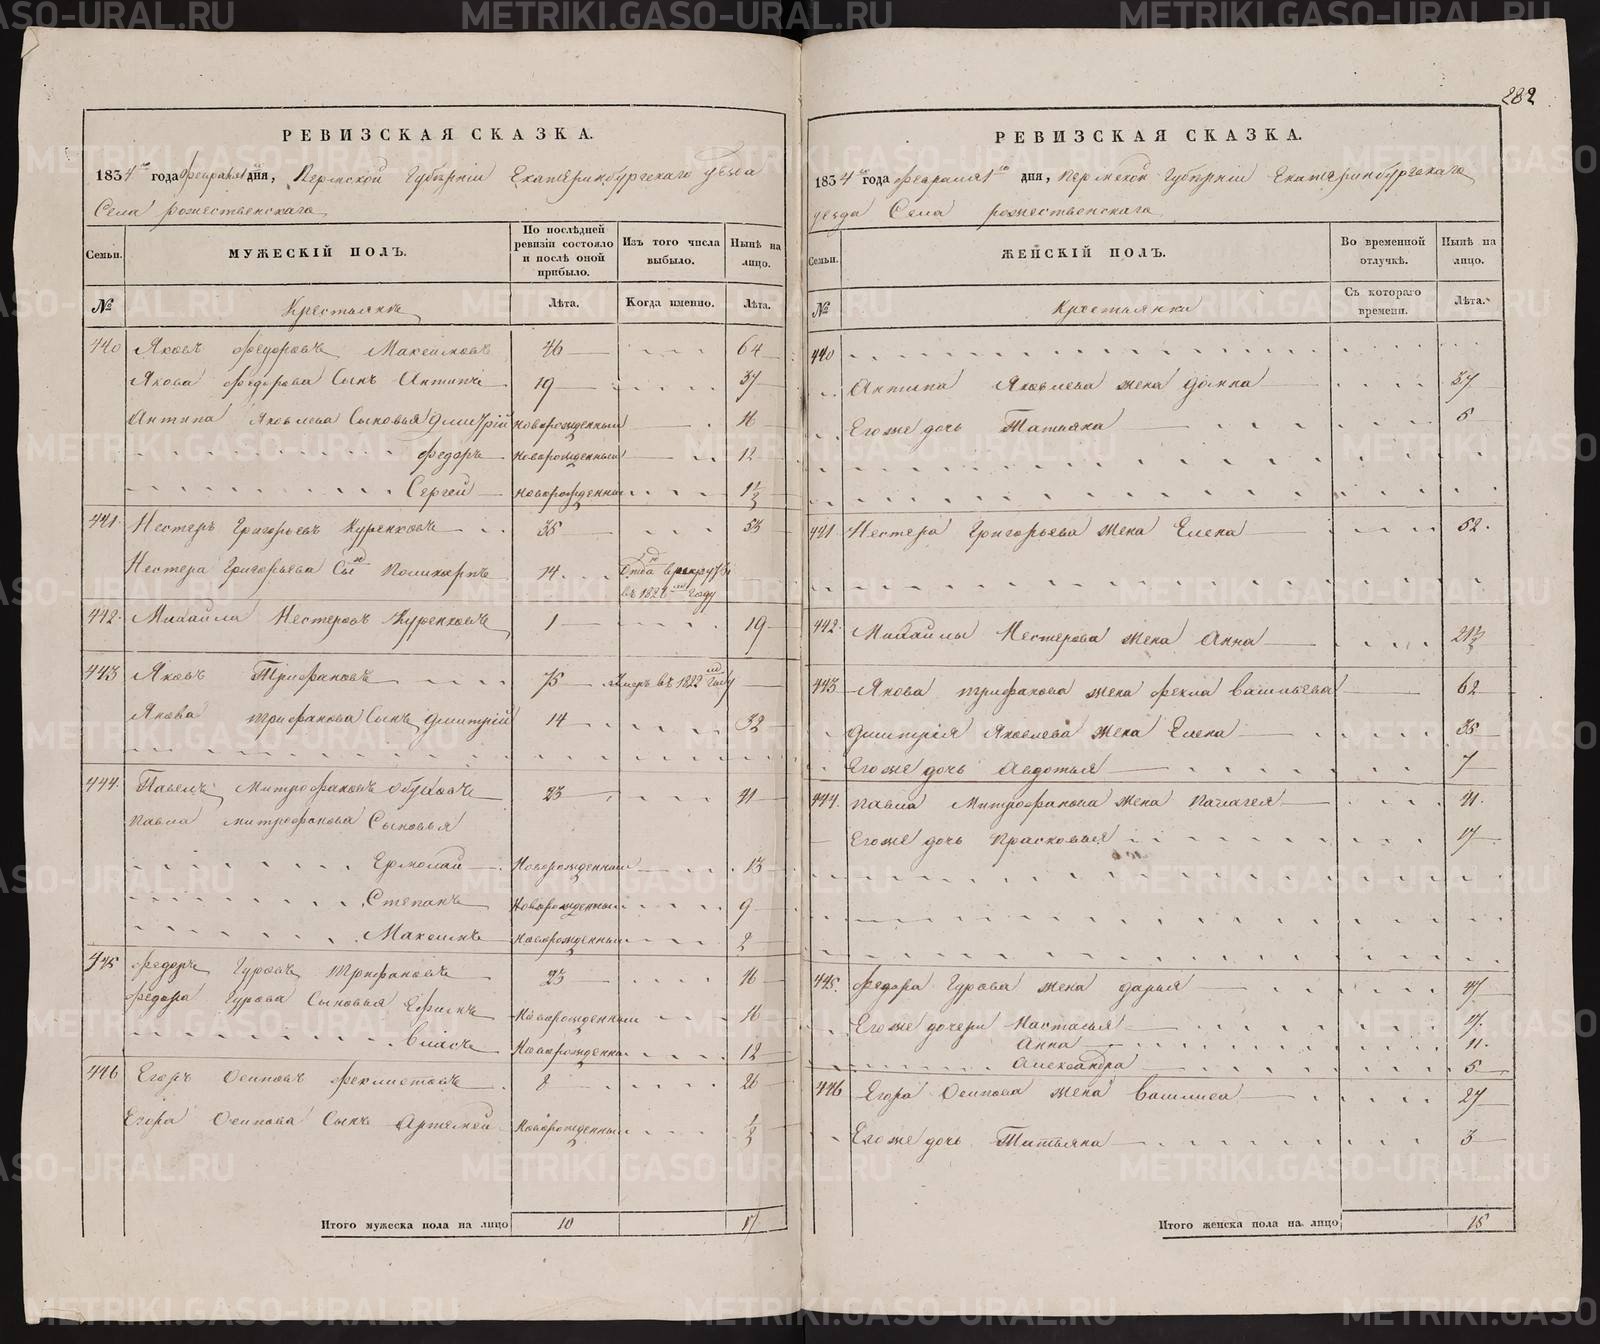 282
РЕВИЗСКАЯ СКАЗКА.
1834го года февраля дня, Пермской Губерніи Екатеринбургскаго уезда
Села рожественскаго
Семьи. МУЖЕСКІЙ ПОЛЪ. По послѣдней ревизіи состояло и послѣ оной прибыло. Изъ того числа выбыло. Нынѣ на лицо.
№ Крестьянъ Лѣта. Когда именно. Лѣта.
440 Яковъ Федоровъ Максимовъ 46 64
Якова федорова Сынъ Антипъ 19 37
Антипа Яковлева Сыновья Дмитрій новорожденный 16
федоръ новорожденный 12
Сергей новорожденны 1 1/2
441. Нестеръ Григорьевъ Куренковъ 35 53
Нестера Григорьева Сынъ Поликарпъ 14 Отдан в рекруты
въ 1828мъ году
442. Михайла Нестеровъ Куренковъ 1 19
443 Яковъ Трифановъ 75 Умеръ въ 1822мъ году
Якова трифанова Сынъ Дмитрій 14 32
444. Павелъ Митрофановъ Обуховъ 23 41
Павла митрофанова Сыновья
Ермолай Новорожденный 13
Степанъ Новорожденный 9
Максимъ Новорожденный 2
445 Федоръ Гуровъ Трифановъ 23 16
Федора Гурова Сыновья Ефимъ Новорожденный 16
Власъ Новорожденны 12
446 Егоръ Осиповъ феклистовъ 8 26
Егора Осипова Сынъ Артемей Новорожденный 1/2
Итого мужеска пола на лицо 10 17
РЕВИЗСКАЯ СКАЗКА.
1834го года февраля 1го дня, Пермской Губерніи Екатеринбургскаго
уезда Села рожественскаго
Семьи. ЖЕНСКІЙ ПОЛЪ. Во временной отлучкѣ. Нынѣ на лицо.
№ Крестьянки Съ котораго времени. Лѣта.
440
Антипа Яковлева жена Домна 37
Егоже дочь Татьяна 5
441 Нестера Григорьева жена Елена 52.
442. Михайлы Нестерова жена Анна 21 1/2
443 Якова трифанова жена фекла васильева 62
Дмитрія Яковлева жена Елена 35
Егоже дочь Авдотья 7
444. Павла Митрофанова жена Палагея 41.
Егоже дочь Прасковья 17
445. Федора Гурова жена Дарья 47
Егоже дочери Настасья 17.
Анна 11.
Александра 5
446 Егора Осипова жена Василиса 27
Егоже дочь Татьяна 3
Итого женска пола на лицо 15
METRIKI.GASO-URAL.RU